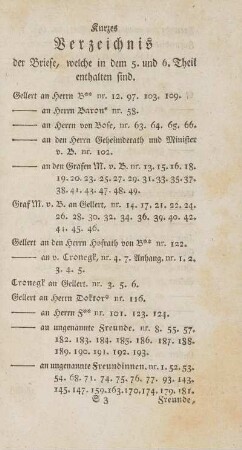 Kurzes
Verzeichnis
der Briefe, welche in dem 5. und 6. Theil
enthalten sind.
Gellert an Herrn B** nr. 12. 97. 103. 109.
—— an Herrn Baron* nr. 58.
—— an Herren von Bose, nr. 63. 64. 65. 66.
—— an den Herrn Geheimderath und Minister
v. B. nr. 102.
—— an den Grafen M. v. B. nr. 13. 15. 16. 18.
19. 20. 23. 25. 27. 29. 31. 33. 35. 37.
38. 41. 43. 47. 48. 49.
Graf M. v. B. an Gellert, nr. 14. 17. 21. 22. 24.
26. 28. 30. 32. 34. 36. 39. 40. 42.
44. 45. 46.
Gellert an den Herrn Hofrath von B** nr. 122.
—— an v. Cronegk, nr. 4. 7. Anhang, nr. 1. 2.
3. 4. 5.
Cronegk an Gellert. nr. 3. 5. 6.
Gellert an Herrn Doktor* nr. 116.
—— an Herrn F** nr. 101. 123. 124.
—— an ungenannte Freunde. nr. 8. 55. 57.
182. 183. 184. 185. 186. 187. 188.
189. 190. 191. 192. 193.
—— an ungenannte Freundinnen. nr. 1. 52. 53.
54. 68. 71. 74. 75. 76. 77. 93. 143.
145. 147. 159. 163. 170. 174. 179. 181.
S 3 Freunde,